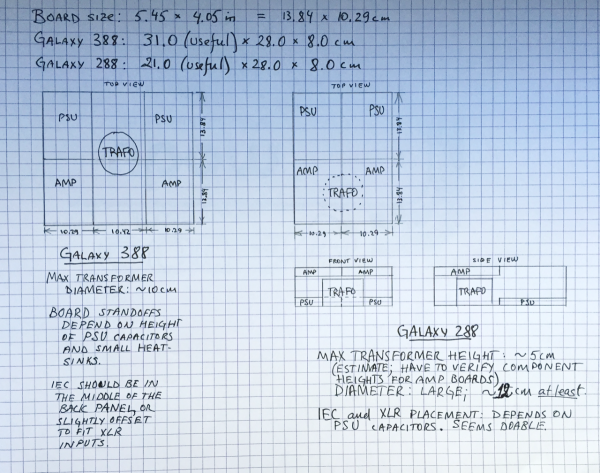 BOARD SIZE: 5.45 × 4.05 in = 13.84 × 10.29 cm
GALAXY 388: 31.0 (useful) × 28.0 × 8.0 cm
GALAXY 288: 21.0 (useful) × 28.0 × 8.0 cm
TOP VIEW
PSU
PSU
13.84
TRAFO
AMP
AMP
13.84
10.29
10.42
10.29
GALAXY 388
MAX TRANSFORMER
DIAMETER: ~10cm
BOARD STANDOFFS
DEPEND ON HEIGHT
OF PSU CAPACITORS
AND SMALL HEAT-
SINKS.
IEC SHOULD BE IN
THE MIDDLE OF THE
BACK PANEL, OR
SLIGHTLY OFFSET
TO FIT XLR
INPUTS.
TOP VIEW
PSU
PSU
13.84
AMP
AMP
TRAFO
13.84
10.29
10.29
FRONT VIEW
AMP
AMP
TRAFO
PSU
PSU
SIDE VIEW
AMP
TRAFO
PSU
GALAXY 288
MAX TRANSFORMER HEIGHT: ~5cm
(ESTIMATE; HAVE TO VERIFY COMPONENT
HEIGHTS FOR AMP BOARDS)
DIAMETER: LARGE; ~12 cm at least.
IEC and XLR PLACEMENT: DEPENDS ON
PSU CAPACITORS. SEEMS DOABLE.